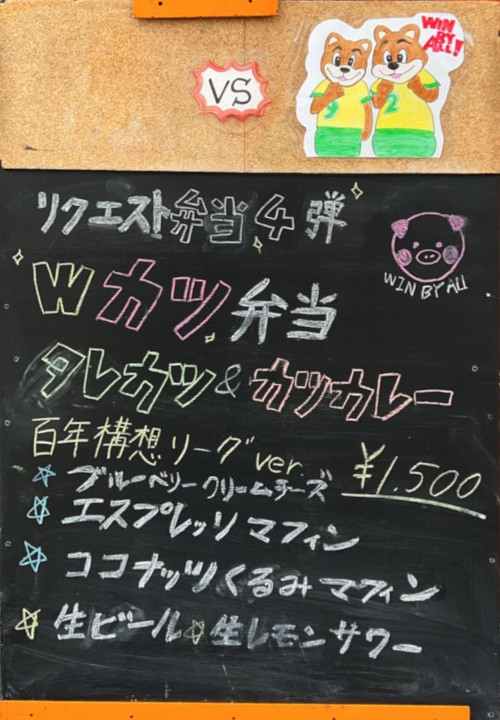 VS
WIN
BY
ALL!
9
2
リクエスト弁当4弾
WIN BY ALL
Wカツ弁当
タレカツ&カツカレー
百年構想リーグver.
¥1.500
ブルーベリークリームチーズ
エスプレッソマフィン
ココナッツくるみマフィン
生ビール 生レモンサワー